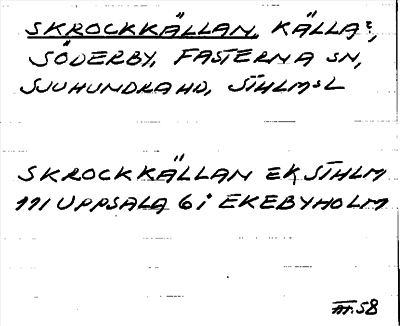 SKROCKKÄLLAN, KÄLLA:,
SÖDERBY, FASTERNA SN,
SJUHUNDRA HD, STHLMS L
SKROCKKÄLLAN EK STHLM
111 UPPSALA 6 i EKEBYHOLM
58